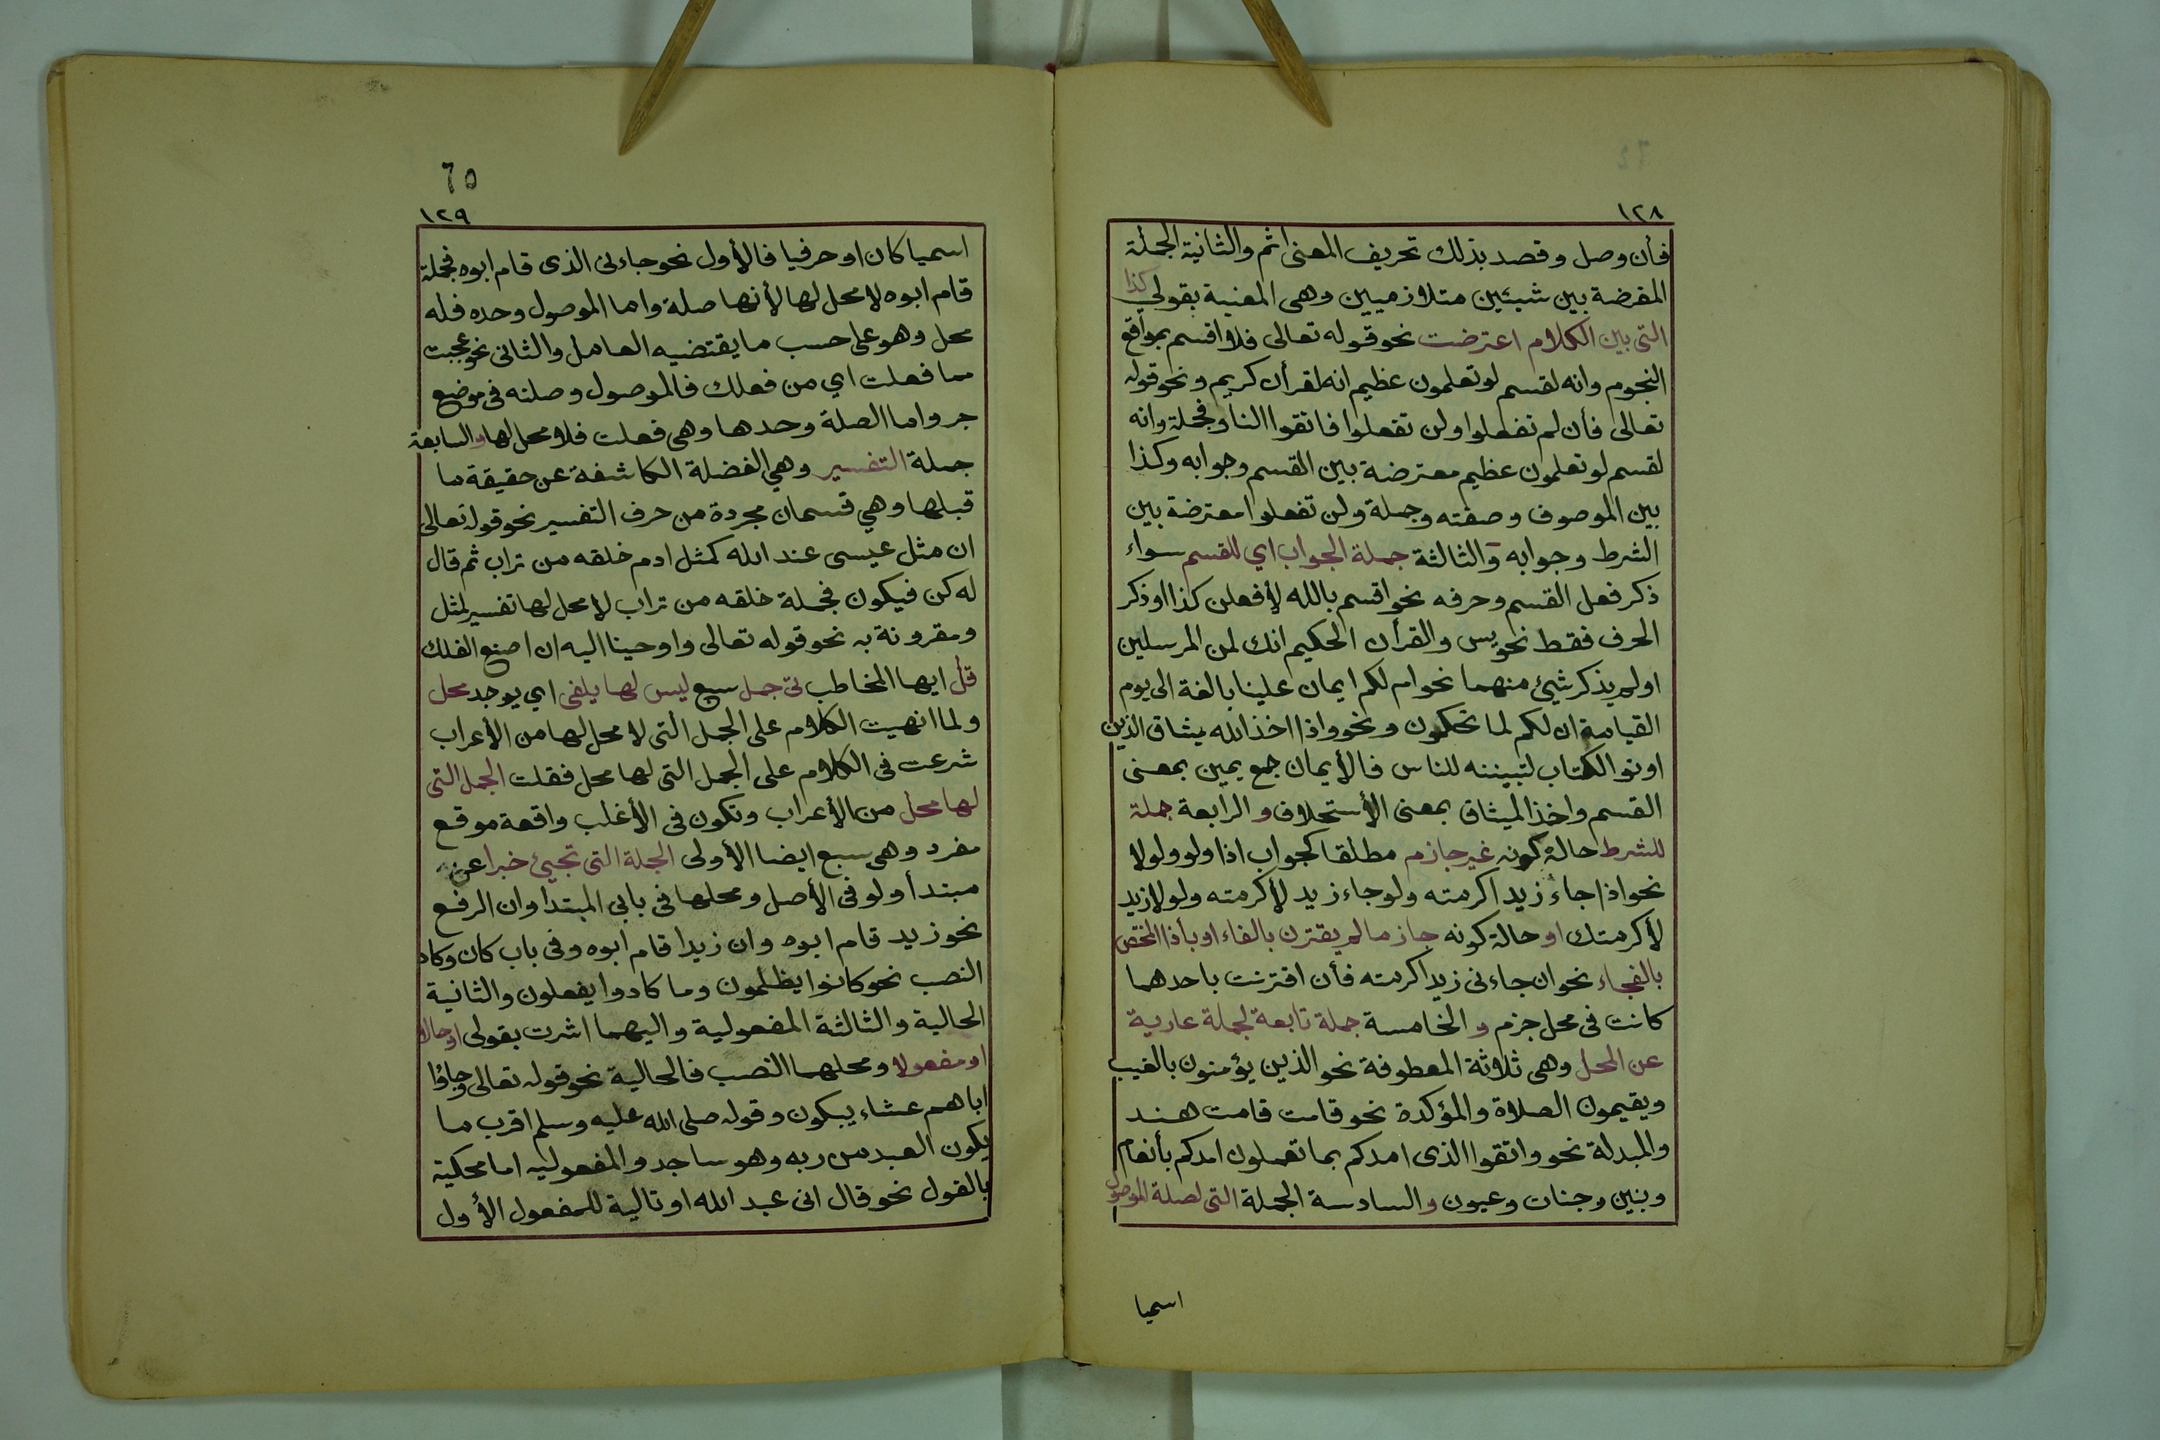 ١٢٨
فأن وصل وقصد بذلك تحريف المعنى اثم والثانية الجملة
المفرضة بين شيئين متلازميين وهى المعنية بقولي كذا
التى بين الكلام اعترضت نحو قوله تعالى فلا اقسم بمواقع
النجوم وانه لقسم لو تعلمون عظيم انه لقرأن كريم ونحو قوله
تعالى فأن لم تفعلوا ولن تفعلوا فاتقوا النار فجملة وانه
لقسم لو تعلمون عظيم معترضة بين القسم وجوابه وكذا
بين الموصوف وصفته وجملة ولن تفعلوا معترضة بين
الشرط وجوابه والثالثة جملة الجواب اي للقسم سواء
ذكر فعل القسم وحرفه نحو اقسم بالله لأفعلن كذا او ذكر
الحرف فقط نحو يس والقرأن الحكيم انك لمن المرسلين
اولم يذكر شيئ منهما نحو ام لكم ايمان علينا بالغة الى يوم
القيامة ان لكم لما تحكمون ونحو واذا اخذ الله ميثاق الذين
اوتوا الكتاب لتبيننه للناس فالأيمان جمع يمين بمعنى
القسم واخذ الميثاق بمعنى الأستحلاف والرابعة جملة
للشرط حالة كونه غير جازم مطلقا كجواب اذا ولو ولولا
نحو اذا جاء زيد اكرمته ولو جاء زيد لأكرمته ولولا زيد
لأكرمتك او حالة كونه جازما لم يقترن بالفاء او بأذا المختص
بالفجاء نحو ان جاءنى زيد اكرمته فأن اقترنت باحدهما
كانت فى محل جزم والخامسة جملة تابعة لجملة عارية
عن المحل وهى ثلاثة المعطوفة نحو الذين يؤمنون بالغيب
ويقيمون الصلاة والمؤكدة نحو قامت قامت هند
والمبدلة نحو واتقوا الذى امدكم بما تعملون امدكم بأنعام
وبنين وجنات وعيون والسادسة الجملة التى لصلة الموصول
اسميا
٦٥
١٢٩
اسميا كان او حرفيا فالأول نحو جاءنى الذى قام ابوه فجملة
قام ابوه لا محل لها لأنها صلة واما الموصول وحده فله
محل وهو على حسب ما يقتضيه العامل والثانى نحو عجبت
مما فعلت اي من فعلك فالموصول وصلته فى موضع
جر واما الصلة وحدها وهى فعلت فلا محل لها والسابعة
جملة التفسير وهي الفضلة الكاشفة عن حقيقة ما
قبلها وهي قسمان مجردة من حرف التفسير نحو قوله تعالى
ان مثل عيسى عند الله كمثل ادم خلقه من تراب ثم قال
له كن فيكون فجملة خلقه من تراب لا محل لها تفسير لمثل
ومقرونة به نحو قوله تعالى واوحينا اليه ان اصنع الفلك
قل ايها المخاطب تى جمل سبع ليس لها يلفى اي يوجد محل
ولما انهيت الكلام على الجمل التى لا محل لها من الأعراب
شرعت فى الكلام على الجمل التى لها محل فقلت الجمل التى
لها محل من الأعراب وتكون فى الأغلب واقعة موقع
مفرد وهى سبع ايضا الأولى الجملة التى تجيئ خبرا عن
مبتدأ ولو فى الأصل ومحلها فى بابى المبتدا وان الرفع
نحو زيد قام ابوه وان زيدا قام ابوه وفى باب كان وكاد
النصب نحو كانوا يظلمون وما كادوا يفعلون والثانية
الحالية والثالثة المفعولية واليهما اشرت بقولى او حالا
او مفعولا ومحلهما النصب فالحالية نحو قوله تعالى وجاؤا
اباهم عشاء يبكون وقوله صلى الله عليه وسلم اقرب ما
يكون العبد من ربه وهو ساجد والمفعوليه اما محكية
بالقول نحو قال انى عبد الله او تالية للمفعول الأول